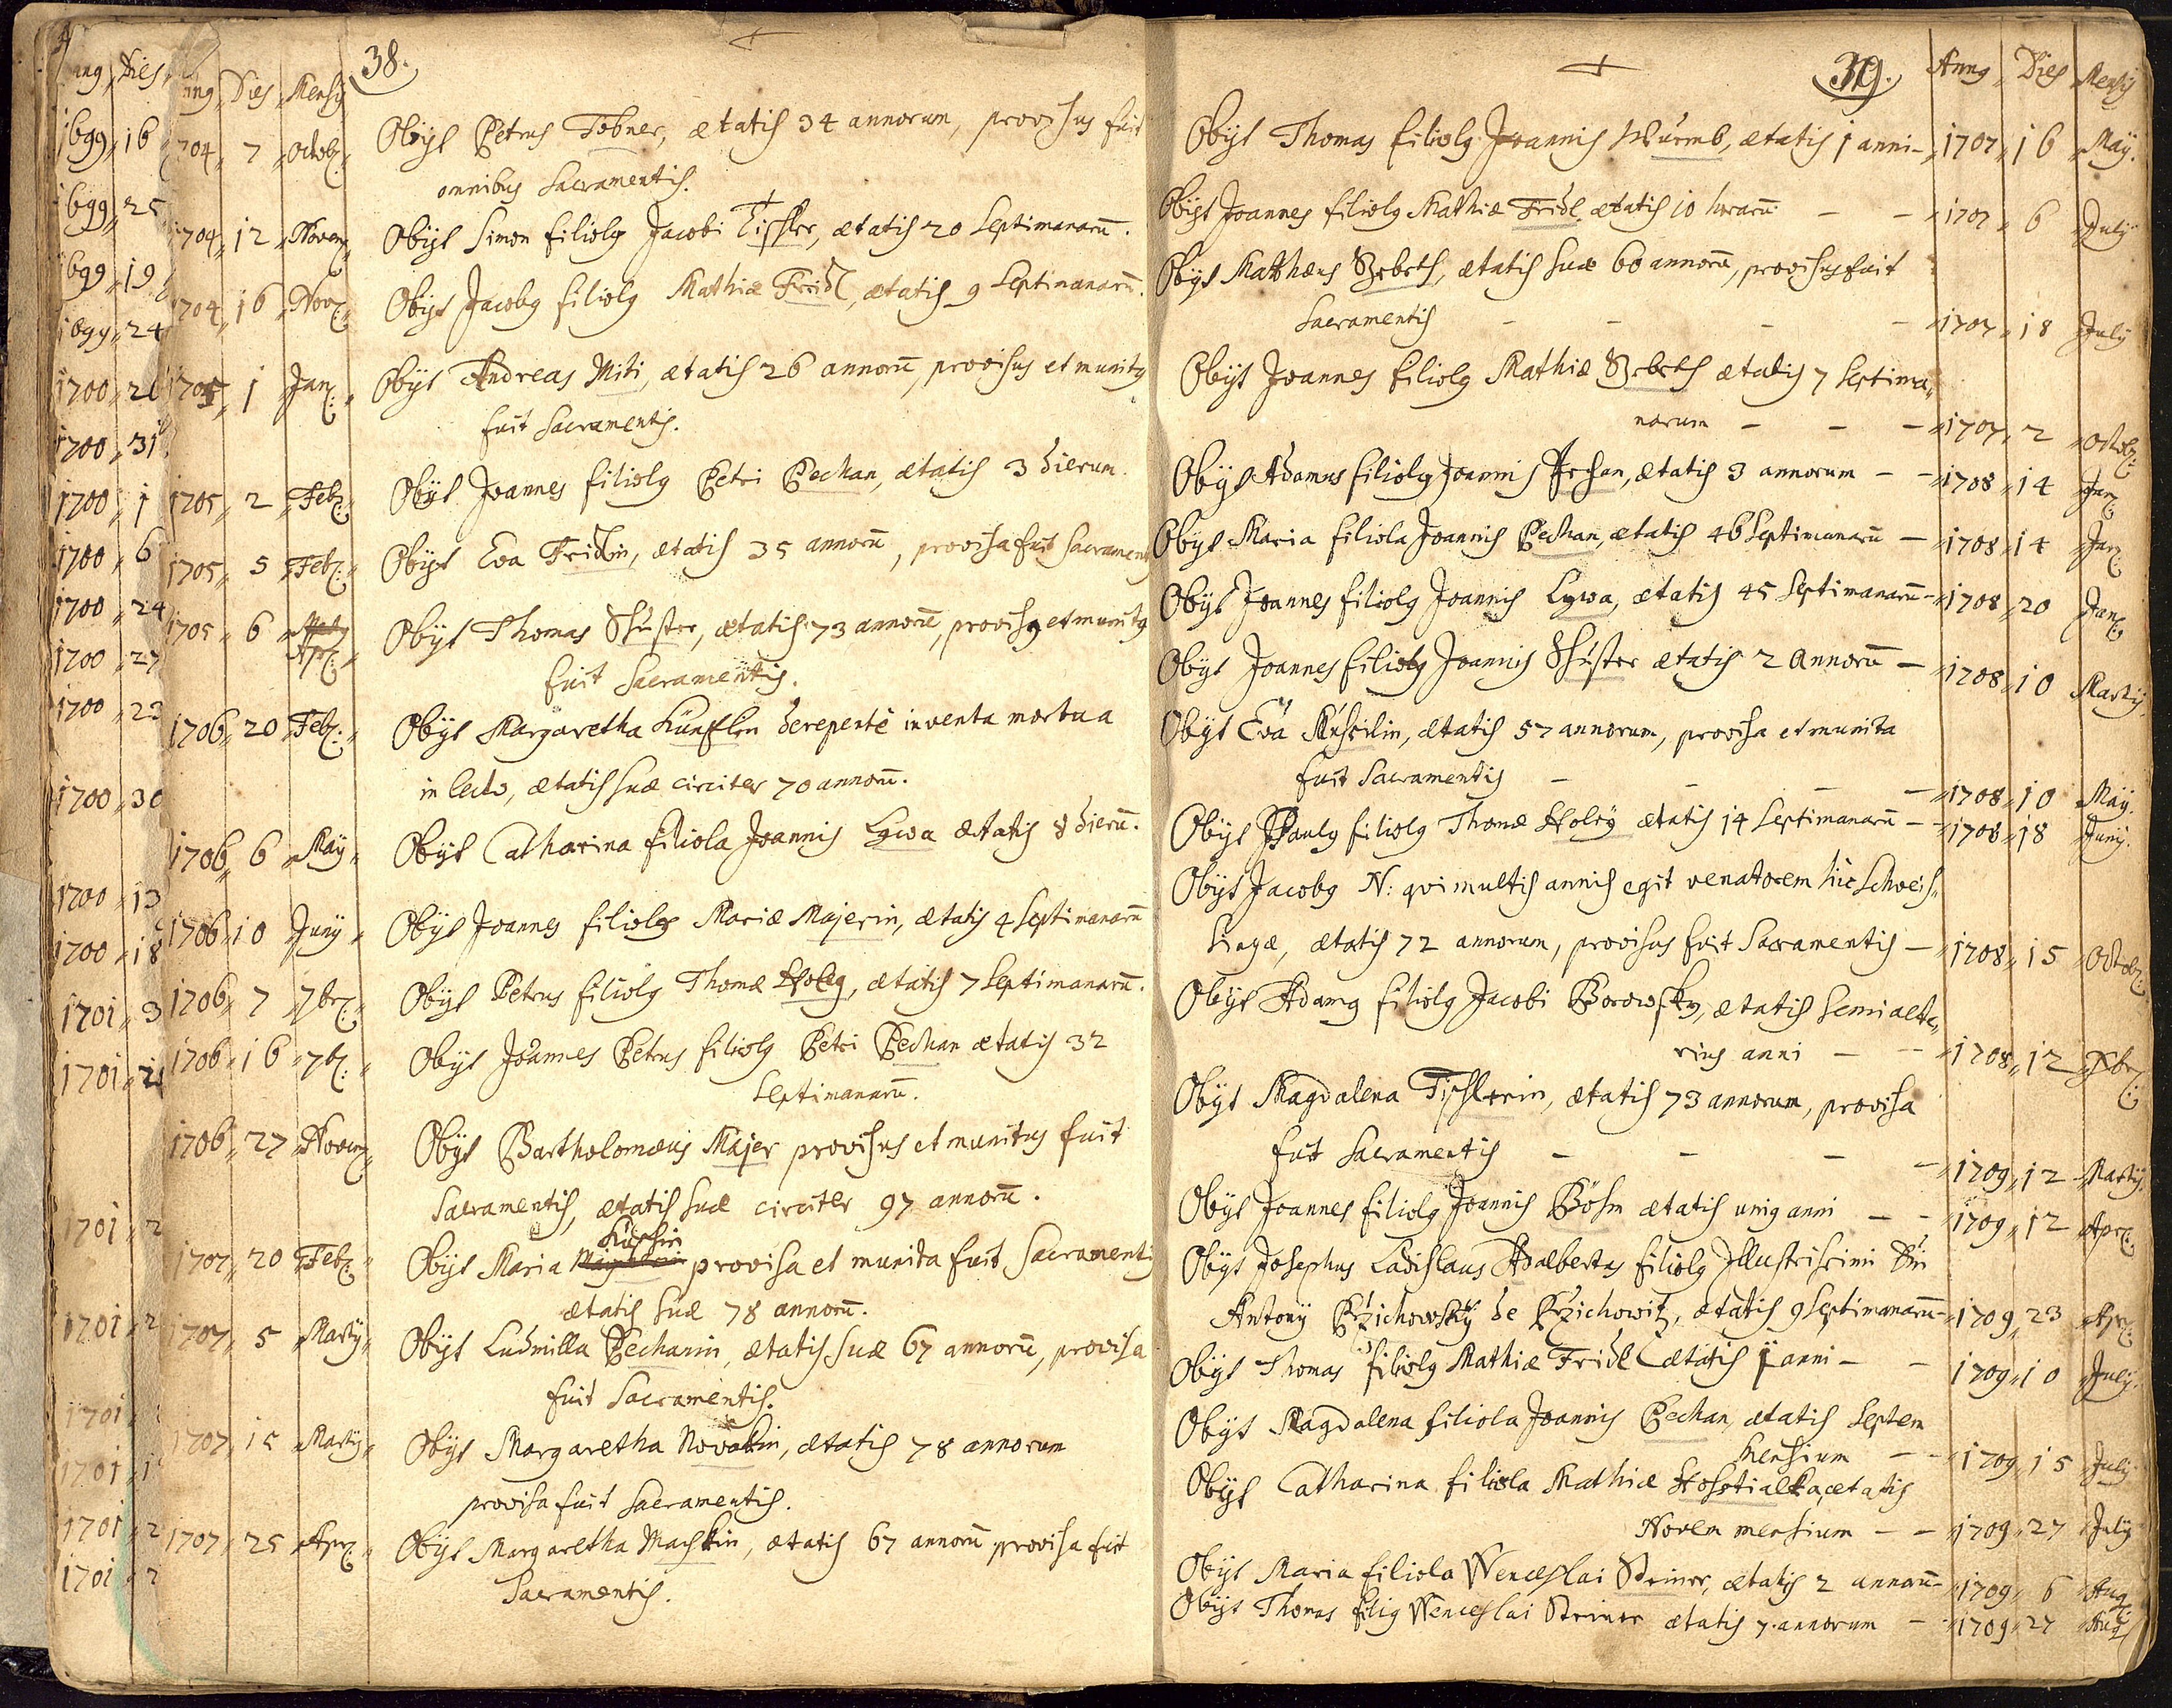 38.
Annus Dies Mensis
1704 7 Octob: Obijt Petrus Tobner, ætatis 34 annorum, provisus fuit
omnibus Sacramentis.
1704 12 Novem: Obijt Simon filiolus Jacobi Tischler, ætatis 20 Septimanarū.
1704 16 Nov: Obijt Jacobus filiolus Mathiæ Fridl, ætatis 9 Septimanarū.
1705 1 Jan: Obijt Andreas Miti, ætatis 26 annorū, provisus et munitus
fuit Sacramentis.
1705 2 Feb: Obijt Joannes filiolus Petri Pechan, ætatis 3 dierum.
1705 5 Feb: Obijt Eva Fridlin, ætatis 35 annorū, provisa fuit Sacramentis
1705 6 Apr: Obijt Thomas Shuster, ætatis 73 annorū, provisus et munitus
fuit Sacramentis.
1706 20 Feb: Obijt Margaretha derepentè inventa mortua
in lecto, ætatis suæ circiter 70 annorū.
1706 6 Maÿ Obijt Catharina filiola Joannis Lywa ætatis 8 dierū.
1706 10 Junÿ Obijt Joannes filiolus Mariæ Majerin, ætatis 4 Septimanarū
1706 7 7br: Obijt Petrus filiolus Thomæ Holeg, ætatis 7 Septimanarū.
1706 16 7b: Obijt Joannes Petrus filiolus Petri Pechan ætatis 32
Septimanarū.
1706 27 Novem: Obijt Bartholomæus Majer provisus et munitus fuit
Sacramentis, ætatis suæ circiter 97 annorū.
1707 20 Feb: Obijt Maria provisa et munita fuit Sacramentis
ætatis suæ 78 annorū.
1707 5 Martÿ Obijt Ludmilla Pechanin, ætatis suæ 67 annorū, provisa
fuit Sacramentis.
1707 15 Martÿ Obijt Margaretha Novakin, ætatis 78 annorum
provisa fuit Sacramentis.
1707 25 Apr: Obijt Margaretha Maschkin, ætatis 67 annorū provisa fuit
Sacramentis.
39. Annus Dies Mensis
Obijt Thomas filiolus Joannis Wurmb, ætatis 1 anni - 1707 16 Maÿ.
Obijt Joannes filiolus Mathiæ Fridl, ætatis 10 horarū - - 1707 6 Julÿ
Obijt Matthæus Bebets, ætatis suæ 60 annorū, provisus fuit
Sacramentis - - - - 1707 18 Julÿ
Obijt Joannes filiolus Mathiæ ætatis 7 Septima„
narum - - - 1707 2 Octob:
Obijt Adamus filiolus Joannis ætatis 3 annorum - - 1708 14 Jan:
Obijt Maria filiola Joannis Pechan, ætatis 46 Septimanarū - 1708 14 Jan:
Obijt Joannes filiolus Joannis Lywa, ætatis 45 Septimanarū - 1708 20 Jan:
Obijt Joannes filiolus Joannis Shuster ætatis 2 Annorū - 1708 10 Martÿ.
Obijt Eva ætatis 57 annorum, provisa et munita
fuit Sacramentis - - - - 1708 10 Maÿ.
Obijt Paulus filiolus Thomæ Holeÿ ætatis 14 Septimanarū - 1708 18 Junÿ.
Obijt Jacobus N: qvi multis annis egit venatorem hìc Schweis„
singæ, ætatis 72 annorum, provisus fuit Sacramentis - 1708 15 Octob:
Obijt Adamus filiolus Jacobi Borowsky, ætatis semialte„
rius anni - - 1708 12 Xbr:
Obijt Magdalena Tischlerin, ætatis 73 annorum, provisa
fuit Sacramentis - - - - 1709 12 Martÿ.
Obijt Joannes filiolus Joannis Böhm ætatis unius anni - - 1709 12 Apr:
Obijt Josephus Ladislaus Adalbertus filiolus Illustrissimi Dni
Antonÿ Przichowskÿ de Przichowitz, ætatis 9 Septimanarū - 1709 23 Apr:
Obijt Thomas filiolus Mathiæ Fridl ætatis 1 anni - - 1709 10 Julÿ.
Obijt Magdalena filiola Joannis Pechan, ætatis Septem
Mensium - - 1709 15 Julÿ
Obijt Catharina filiola Mathiæ Hosstialka, ætatis
Novem mensium - - 1709 27 Julÿ
Obijt Maria filiola Wenceslai Steiner, ætatis 2 annorū - 1709 6 Aug:
Obijt Thomas filius Wenceslai Steiner ætatis 7 annorum - 1709 27 Aug: